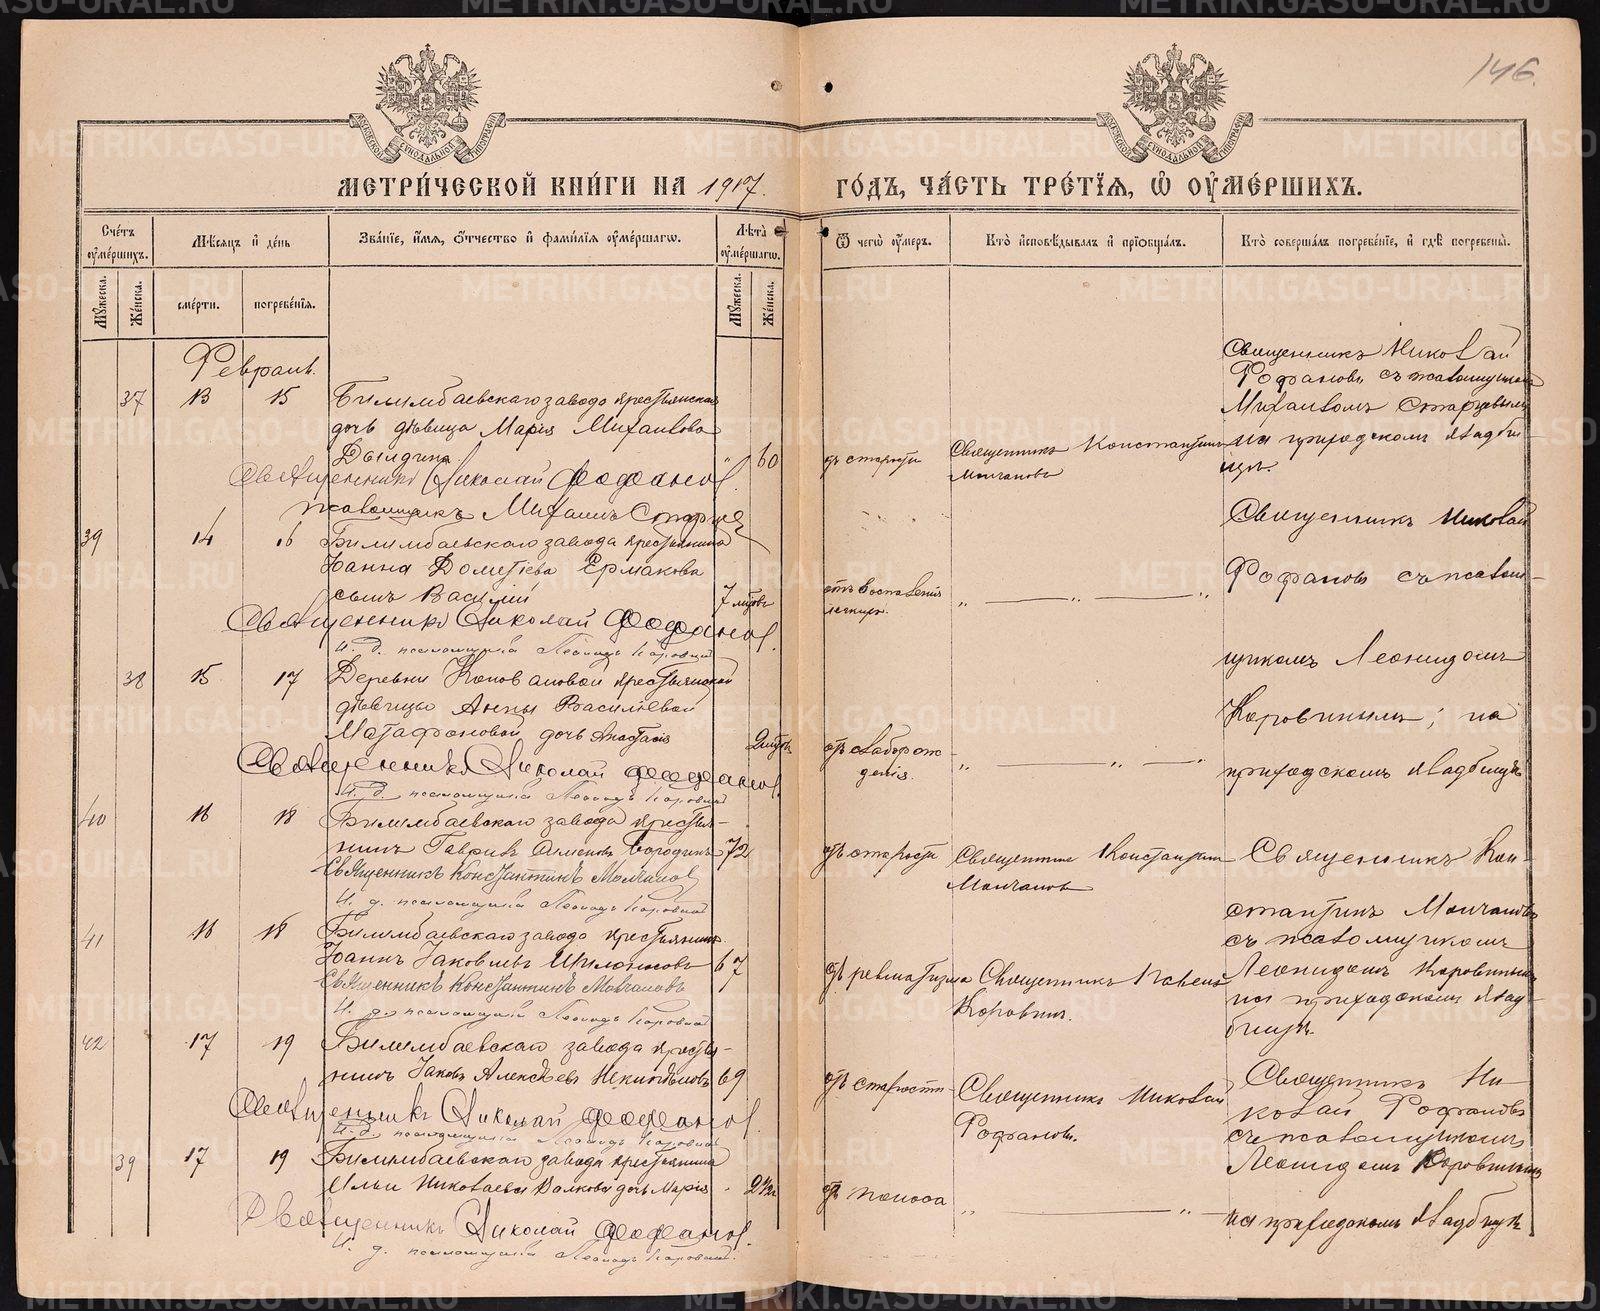 146.
МЕТРИЧЕСКОЙ КНИГИ НА 1917.
ГОДЪ, ЧАСТЬ ТРЕТІЯ, Ѿ ОУМЕРШИХЪ.
Счетъ оумершихъ.
Мѣсяцъ и день
Званіе, имя, отчество и фамилія оумершагѡ.
Лѣта оумершагѡ.
Ѿ чегѡ оумеръ.
Кто исповѣдывалъ и пріобщалъ.
Кто совершалъ погребеніе, и гдѣ погребены.
Мужеска.
Женска.
смерти.
погребенія.
Мужеска.
Женска.
Февраль.
37 13 15 Билимбаевскаго завода крестьянская
дочь дѣвица Марія Михаилова
Дылдина. " 60
отъ старости
Священникъ Константинъ
Молчановъ
Священникъ Николай
Фофановъ съ псаломщикомъ
Михаиломъ Старцевымъ
на приходскомъ кладби-
щѣ.
Священникъ Николай Фофановъ.
псаломщикъ Михаилъ Старцев
39 14 16 Билимбаевскаго завода крестьянина
Іоанна Дометіева Ермакова
сынъ Василій 7 мѣсяц
отъ воспаленія
легкихъ.
" — " — "
Священникъ Николай
Фофановъ съ псалом-
щикомъ Леонидомъ
Коровинымъ; на
приходскомъ кладбищѣ
Священникъ Николай Фофанов.
И. д. псаломщика Леонидъ Коровинъ
38 15 17 Деревни Коноваловой крестьянской
дѣвицы Анны Василіевой
Матафоновой дочь Анастасія
отъ слаборож-
денія.
" — " — "
Священникъ Николай Фофанов.
И. д. псаломщика Леонидъ Коровинъ
40 16 18 Билимбаевскаго завода крестья-
нинъ Гавриилъ Симеоновъ Бородинъ 72
отъ старости
Священникъ Константинъ
Молчановъ
Священникъ Кон-
стантинъ Молчановъ
съ псаломщикомъ
Леонидомъ Коровинымъ
на приходскомъ клад-
бищѣ.
Священникъ Константинъ Молчановъ
И. д. псаломщика Леонидъ Коровинъ
41 16 18 Билимбаевскаго завода крестьянинъ
Іоаннъ Іаковлевъ 67
отъ ревматизма
Священникъ Павелъ
Коровинъ.
Священникъ Константинъ Молчановъ
И. д. псаломщика Леонидъ Коровинъ
42 17 19 Билимбаевскаго завода крестья-
нинъ Іаковъ Алексѣевъ 69
отъ старости
Священникъ Николай
Фофановъ.
Священникъ Ни-
колай Фофановъ
съ псаломщикомъ
Леонидомъ Коровинымъ
на приходскомъ кладбищѣ
Священникъ Николай Фофанов.
И. д. псаломщика Леонидъ Коровинъ
39 17 19 Билимбаевскаго завода крестьянина
Ильи Николаева Волкова дочь Марія
отъ поноса
" — "
Священникъ Николай Фофанов.
И. д. псаломщика Леонидъ Коровинъ.
METRIKI.GASO-URAL.RU